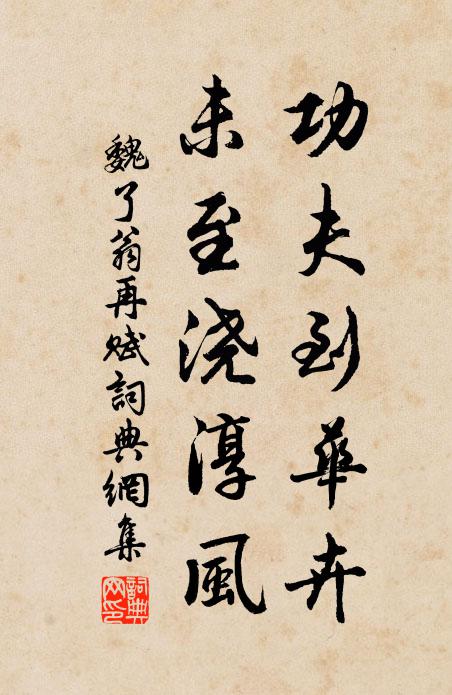 功夫到華卉
未至浇淳風
魏了翁再赋詞典網集
詞典網印